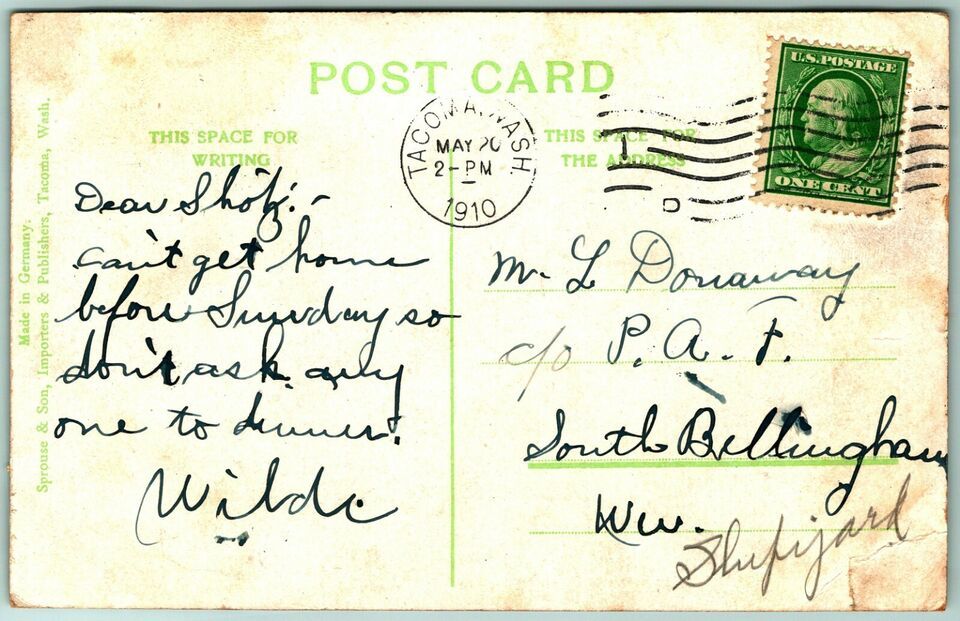 POST CARD
THIS SPACE FOR
WRITING
THIS SPACE FOR
THE ADDRESS
TACOMA, WASH.
MAY 20
2-PM
1910
U.S. POSTAGE
ONE CENT
Made in Germany.
Sprouse & Son, Importers & Publishers, Tacoma, Wash.
Dear
can't get home
before Sunday so
don't ask any
one to dinner.
Mr L Donaway
c/o P. A. F.
South Bellingham
Wn.
Shipyard